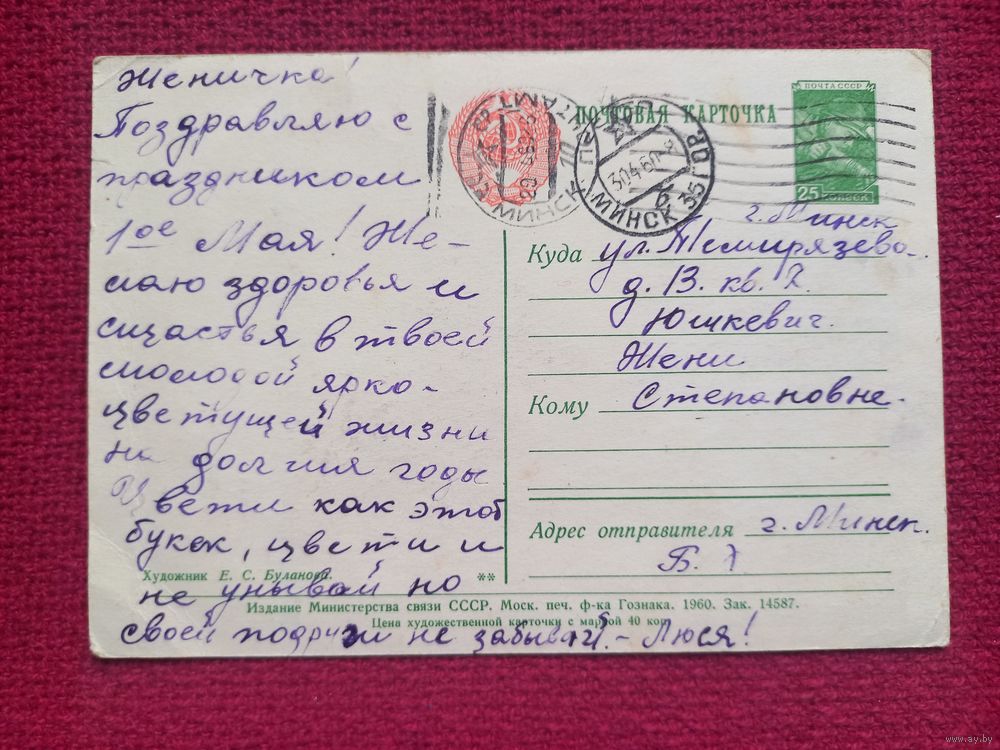 Женичка!
Поздравляю с
праздником
1ое Мая! Же-
лаю здоровья и
счастья в твоей
молодой ярко-
цветущей жизни
на долгия годы
Цвети как этот
букек, цвети и
не унывай но
своей подруги не забывай. - Люся!
Художник Е. С. Буланова.
**
ПОЧТОВАЯ КАРТОЧКА
ПОЧТА СССР
25 КОПЕЕК
МИНСК
МИНСК
30.4.60
г. Минск
Куда ул. Темирязева.
д. 13. кв. 2.
Юшкевич.
Жени
Кому Степановне.
Адрес отправителя г. Минск.
Издание Министерства связи СССР. Моск. печ. ф-ка Гознака. 1960. Зак. 14587.
Цена художественной карточки с маркой 40 коп.
www.ay.by